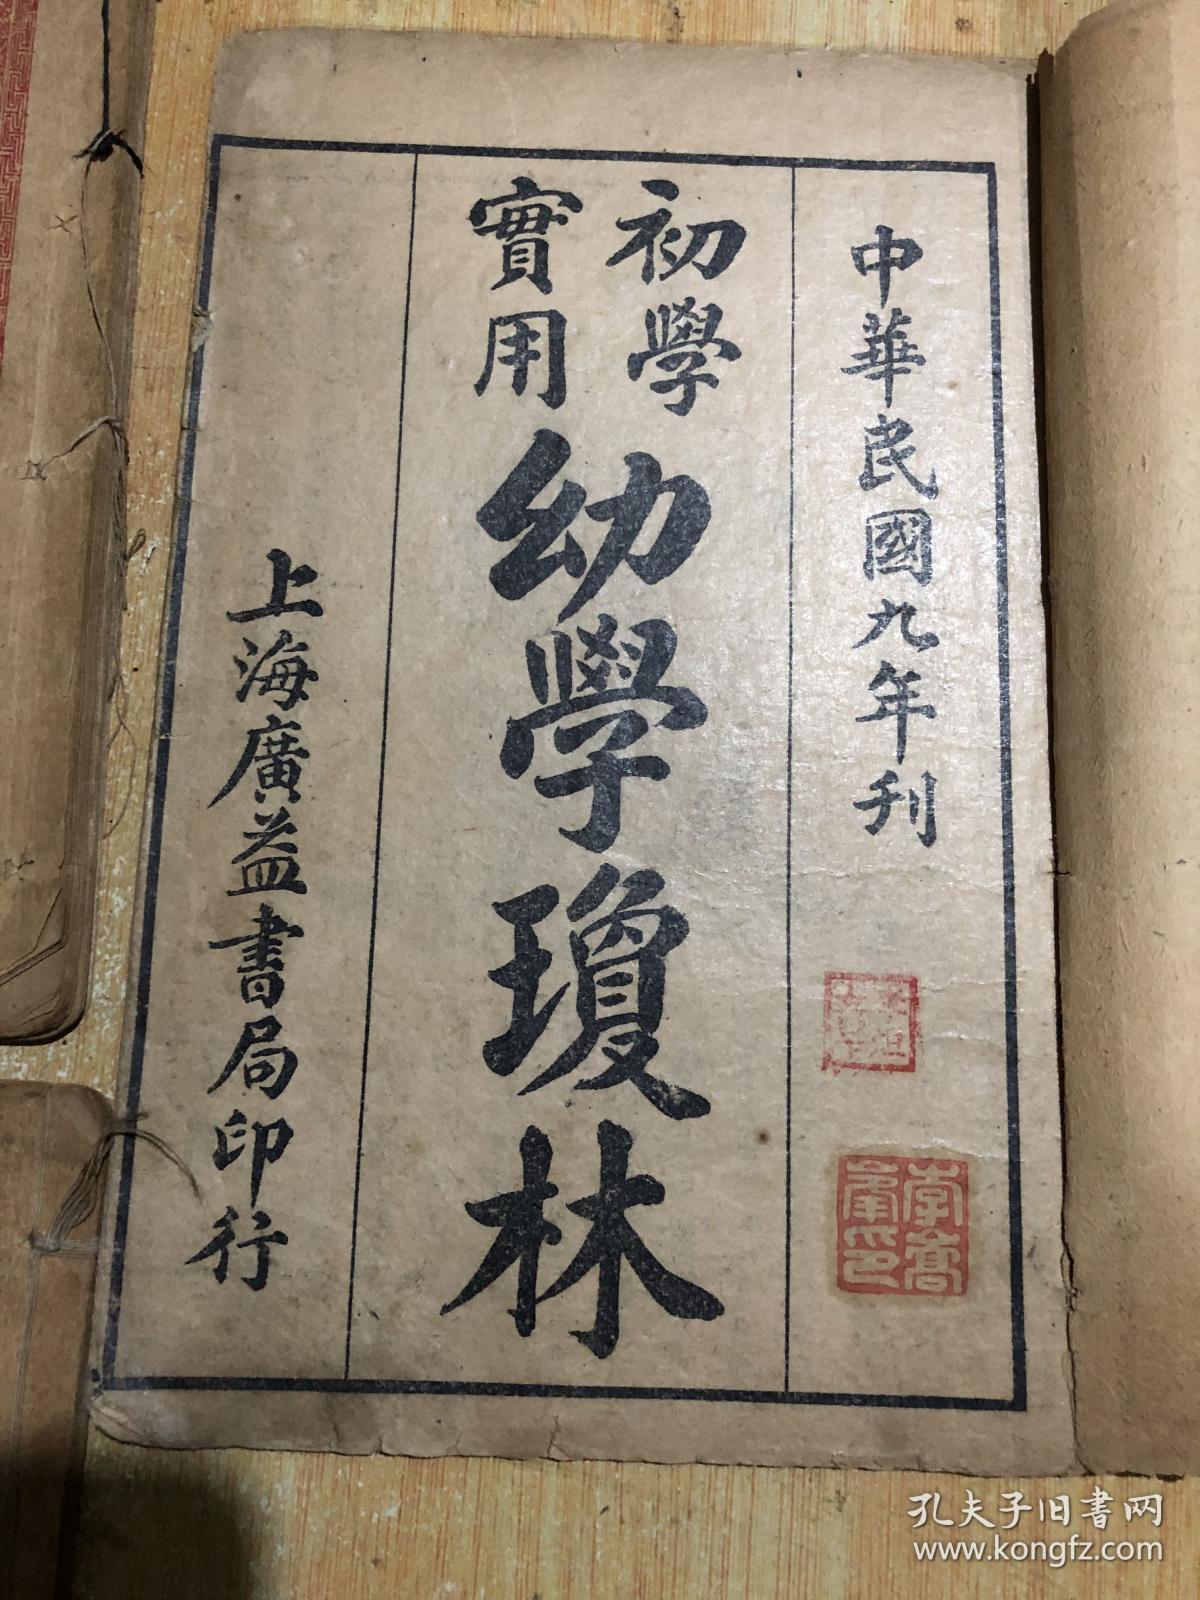 中華民國九年刊
初學
實用
幼學瓊林
上海廣益書局印行
孔夫子旧书网
www.kongfz.com